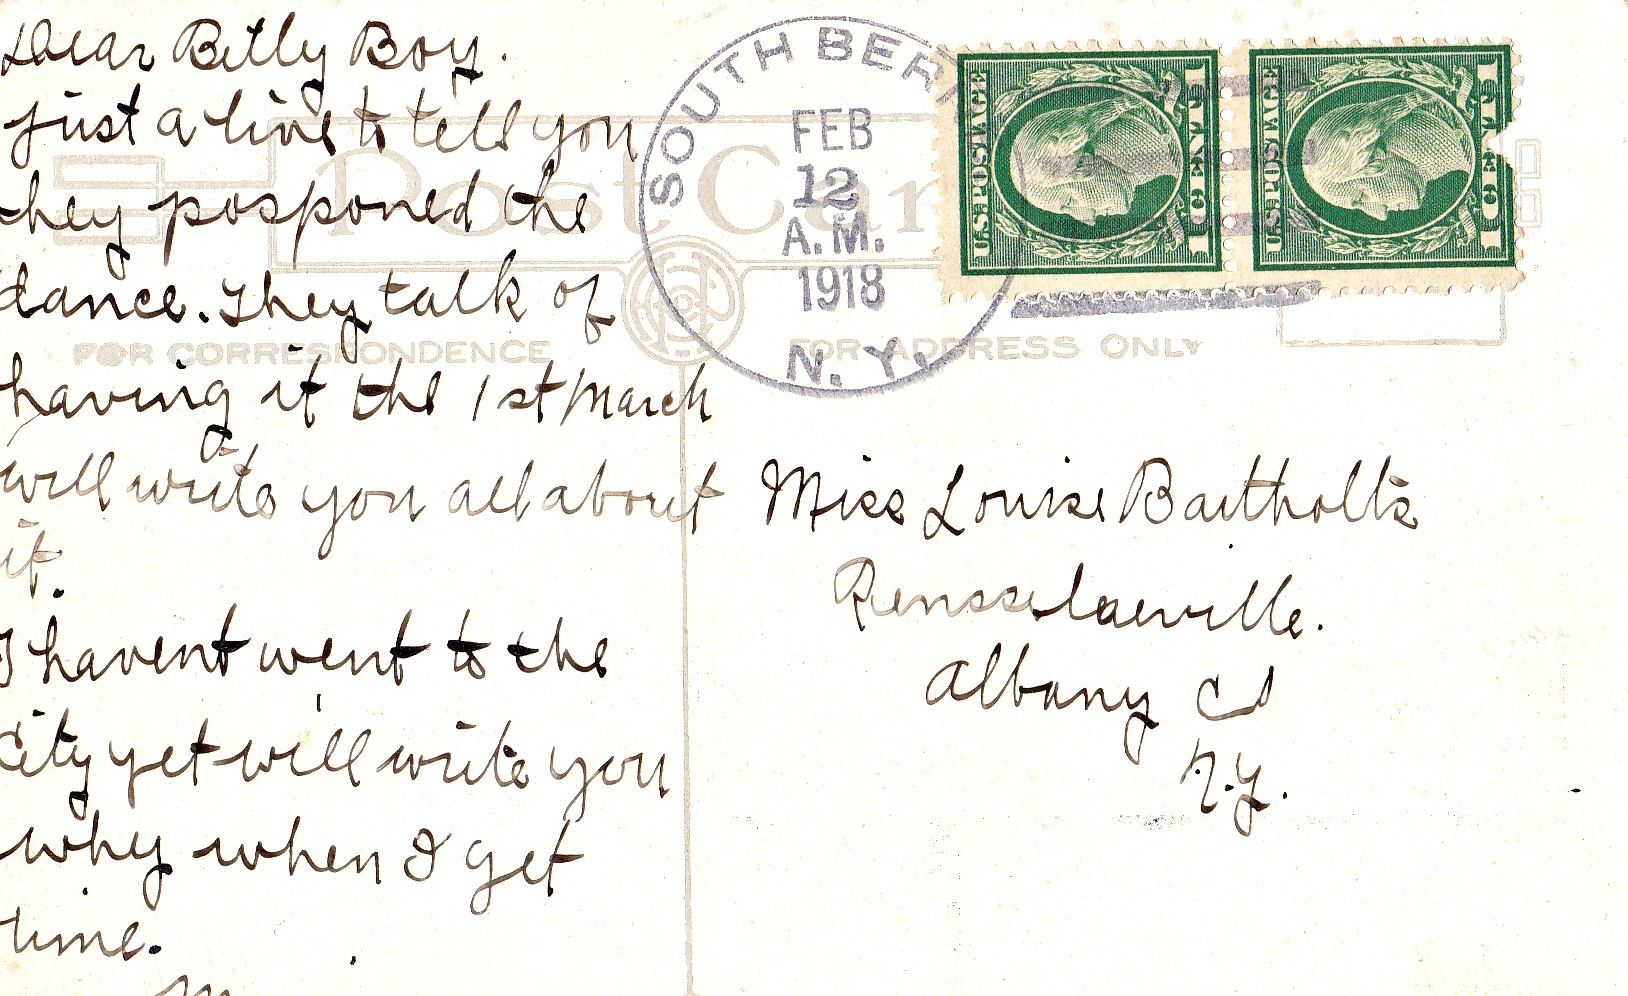 Dear Billy Boy.
just a line to tell you
they posponed the
dance. They talk of
having it the 1st March
will write you all about
it.
I havent went to the
City yet will write you
why when I get
time.
M
Post Car
FOR CORRESPONDENCE
FOR ADDRESS ONLY
SOUTH BER
FEB
12
A.M.
1918
N. Y.
U.S. POSTAGE
1 CENT 1
U.S. POSTAGE
1 CENT 1
Miss Louise Bartholts
Rensselaerville.
Albany Co
N.Y.